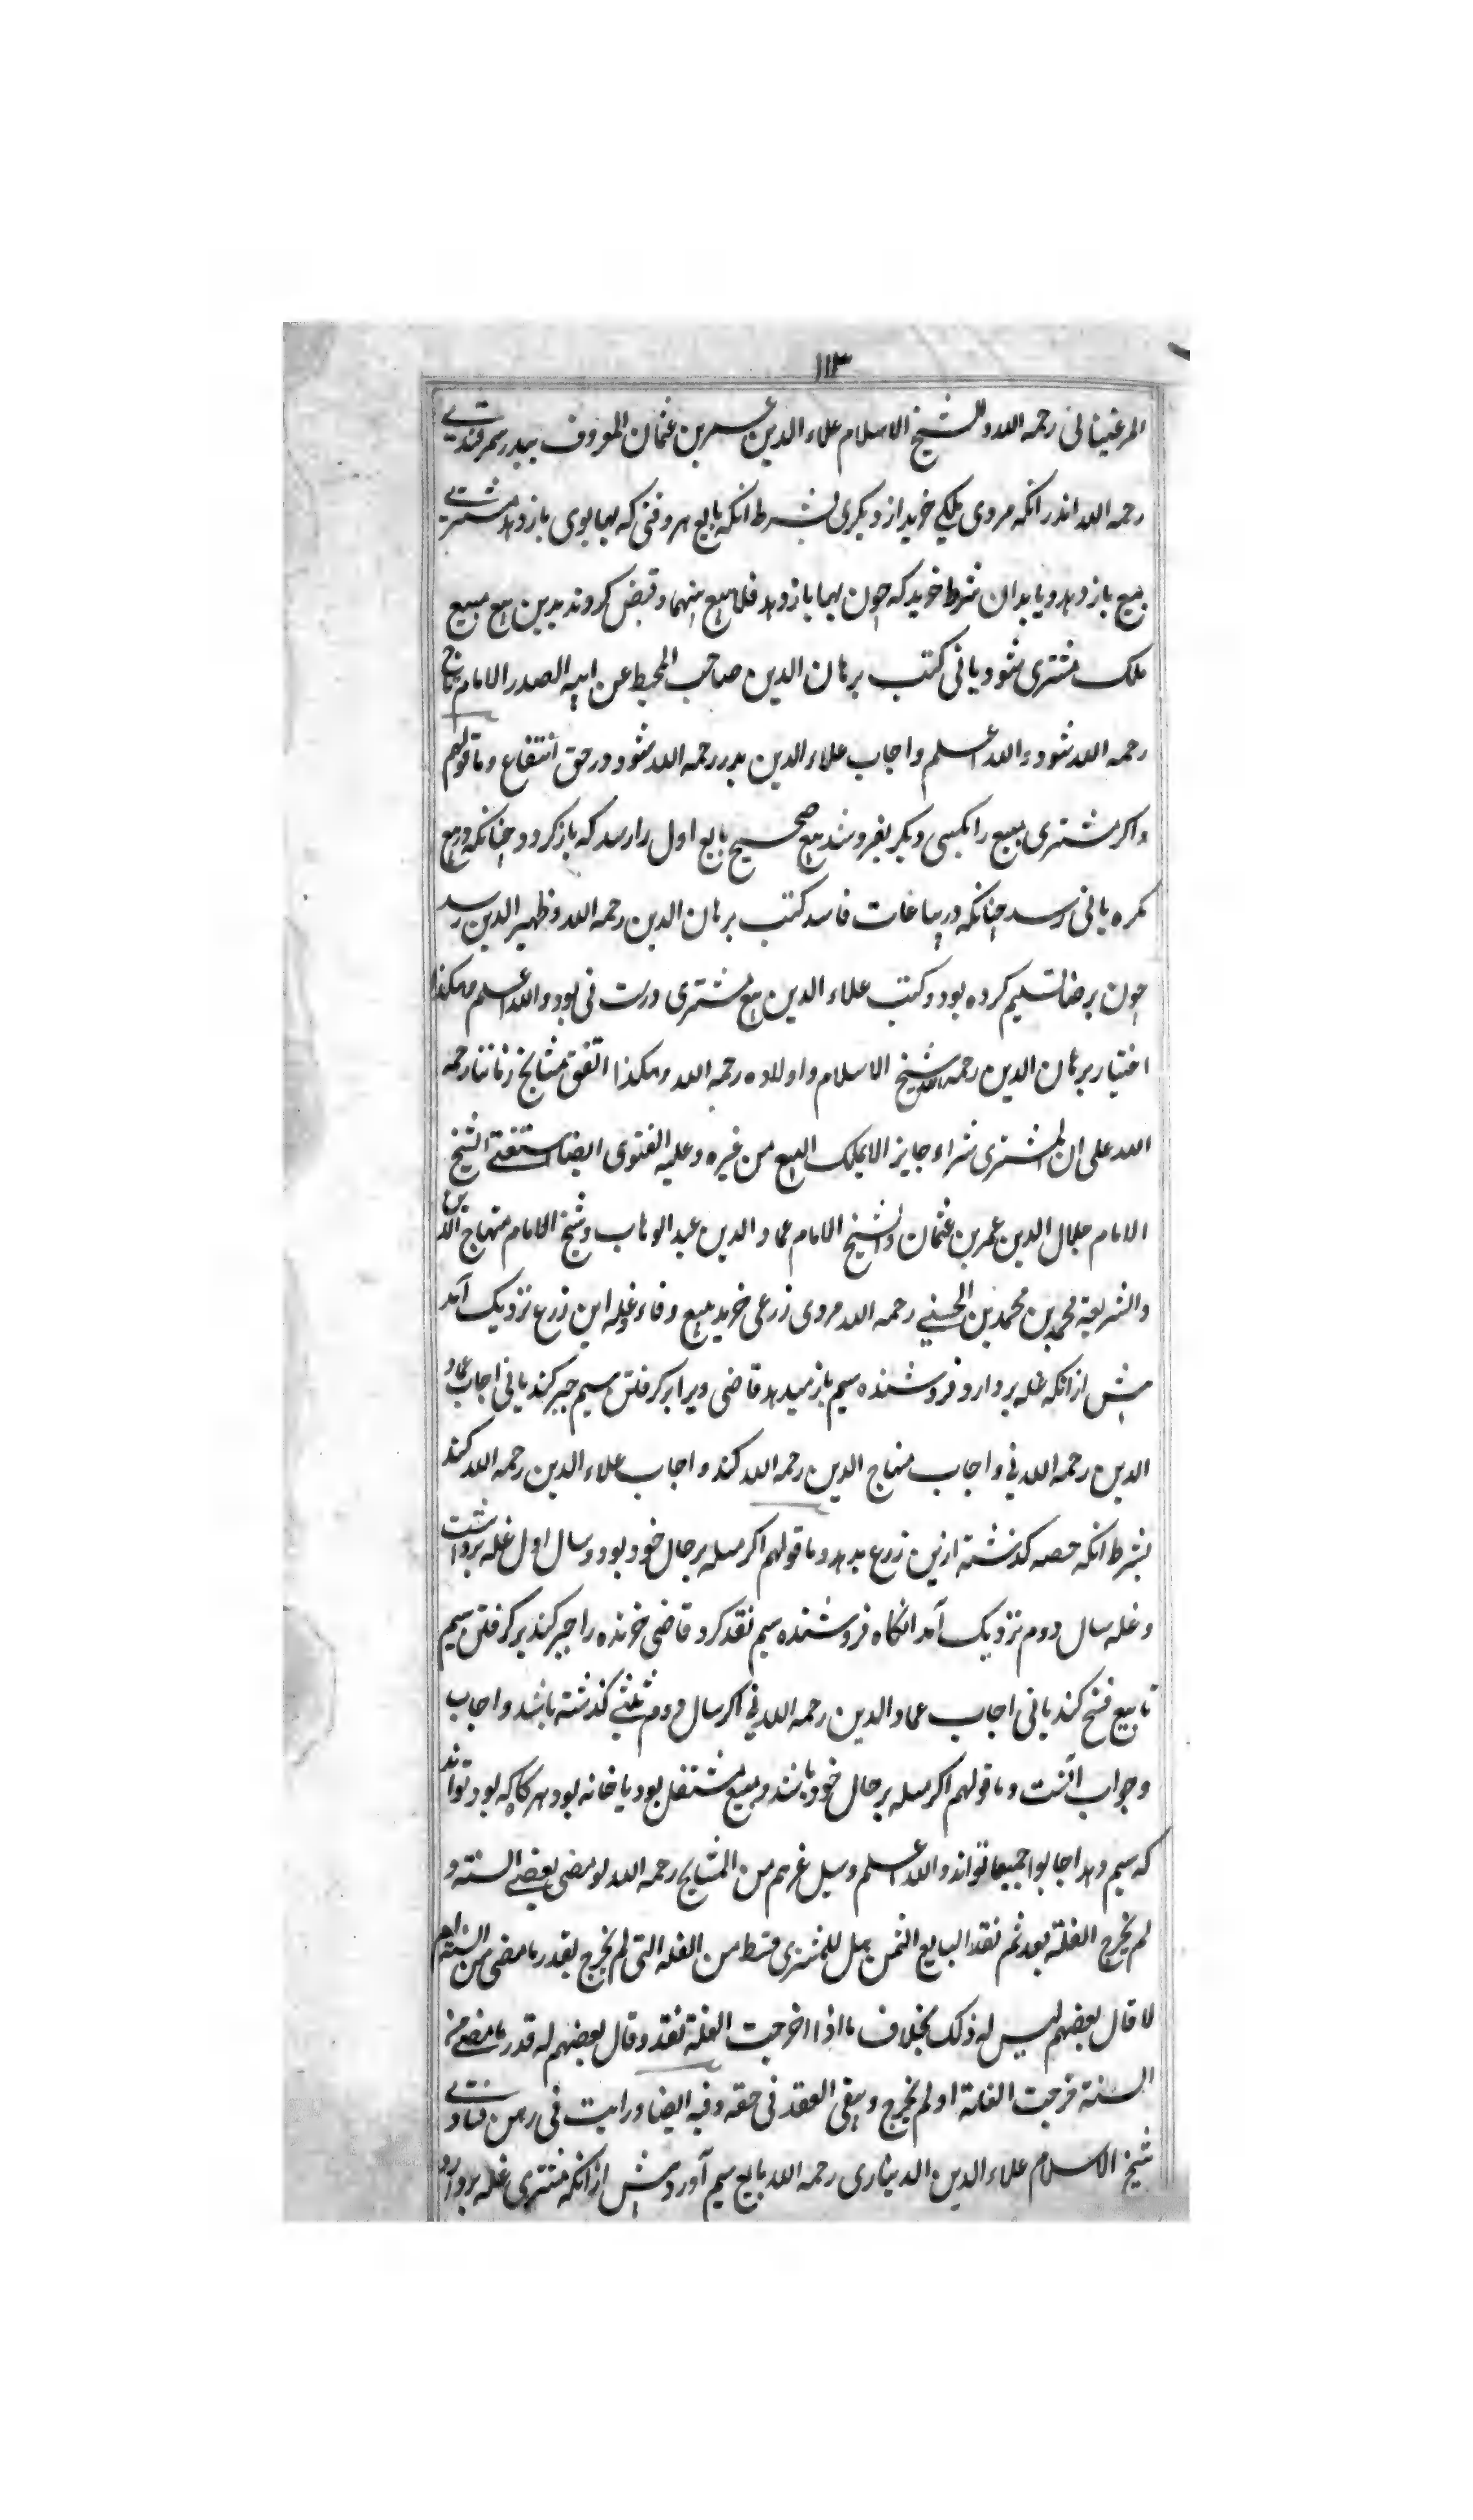 ١١٣
المرغینانی رحمه الله والشیخ الاسلام علاء الدین عمر بن عثمان المعروف ببدر سمرقندی
رحمه الله اندر آنکه مردی ملکی خرید از دیکری بشرط آنکه بایع هر وقتی که بها بوی باز دهد مشتری
مبیع باز دهد و یا بدان شرط خرید که چون بها باز دهد فلا بیع بینهما و قبض کردند بدین بیع مبیع
ملک مشتری شود یا نی کتب برهان الدین صاحب المحیط عن ابیه الصدر الامام تاج
رحمه الله شود والله اعلم واجاب علاء الدین بدر رحمه الله شود در حق انتفاع وما قولهم
واکر مشتری مبیع را بکسی دیکر بفروشد بیع صحیح بایع اول را رسد که باز کردد چنانکه در بیع
مکره یا نی رسد چنانکه در بیاعات فاسد کتب برهان الدین رحمه الله وظهیر الدین رسد
چون برضا تسلیم کرده بود وکتب علاء الدین بیع مشتری درست نی بود والله اعلم وهکذا
اختیار برهان الدین رحمه الله شیخ الاسلام واولاده رحمه الله وهکذا اتفق مشایخ زماننا رحمه
الله علی ان المشتری شراء جایز الا یملک البیع من غیره وعلیه الفتوی ایضا استفتی الشیخ
الامام جلال الدین عمر بن عثمان والشیخ الامام عماد الدین عبد الوهاب وشیخ الامام منهاج الدین
والشریعة محمد بن محمد بن الحسینی رحمه الله مردی زرعی خرید ببیع وفاء وغله این زرع نزدیک آمد
پیش از آنکه غله بردارد فروشنده سیم باز میدهد قاضی ویرا بر کرفتن سیم جبر کند یا نی اجاب عماد
الدین رحمه الله نی واجاب منهاج الدین رحمه الله کند واجاب علاء الدین رحمه الله کند
بشرط آنکه حصه کذشته ازین زرع بدهد وما قولهم اکر مسله بر حال خود بود و سال اول غله برداشت
وغله سال دوم نزدیک آمد انکاه فروشنده سیم نقد کرد قاضی خرنده را جبر کند بر کرفتن سیم
تا بیع فسخ کند یا نی اجاب عماد الدین رحمه الله نی اکر سال دوم ثلثی کذشته باشد واجاب
وجواب آنست وما قولهم اکر مسله بر حال خود باشد ومبیع مستغل بود یا خانه بود هر کاه که بود تواند
که سیم دهد اجابوا جمیعا تواند والله اعلم وسیل غیرهم من المشایخ رحمه الله لو مضی بعض السنة و
لم یخرج الغلة بعد ثم نقد البایع الثمن هل للمشتری قسط من الغله التی لم یخرج بقدر ما مضی من السنة ام
لا قال بعضهم لیس له ذلک بخلاف ما اذا اخرجت الغلة نقد وقال بعضهم له قدر ما مضی من
السنة خرجت الغلة او لم یخرج ویبقی العقد فی حقه وفیه ایضا ورایت فی رهن فتاوی
شیخ الاسلام علاء الدین الدیناری رحمه الله بایع سیم آورد پیش از آنکه مشتری غله بردارد